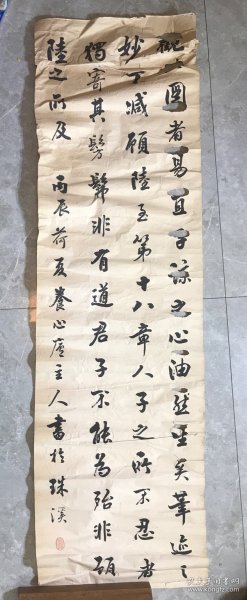 視此圖者易直子諒之心油然生矣筆迹之
妙不減顧陸至第十八章人子之所不忍者
獨寄其髣髴非有道君子不能為殆非顧
陸之所及 丙辰荷夏養心廬主人書於珠溪